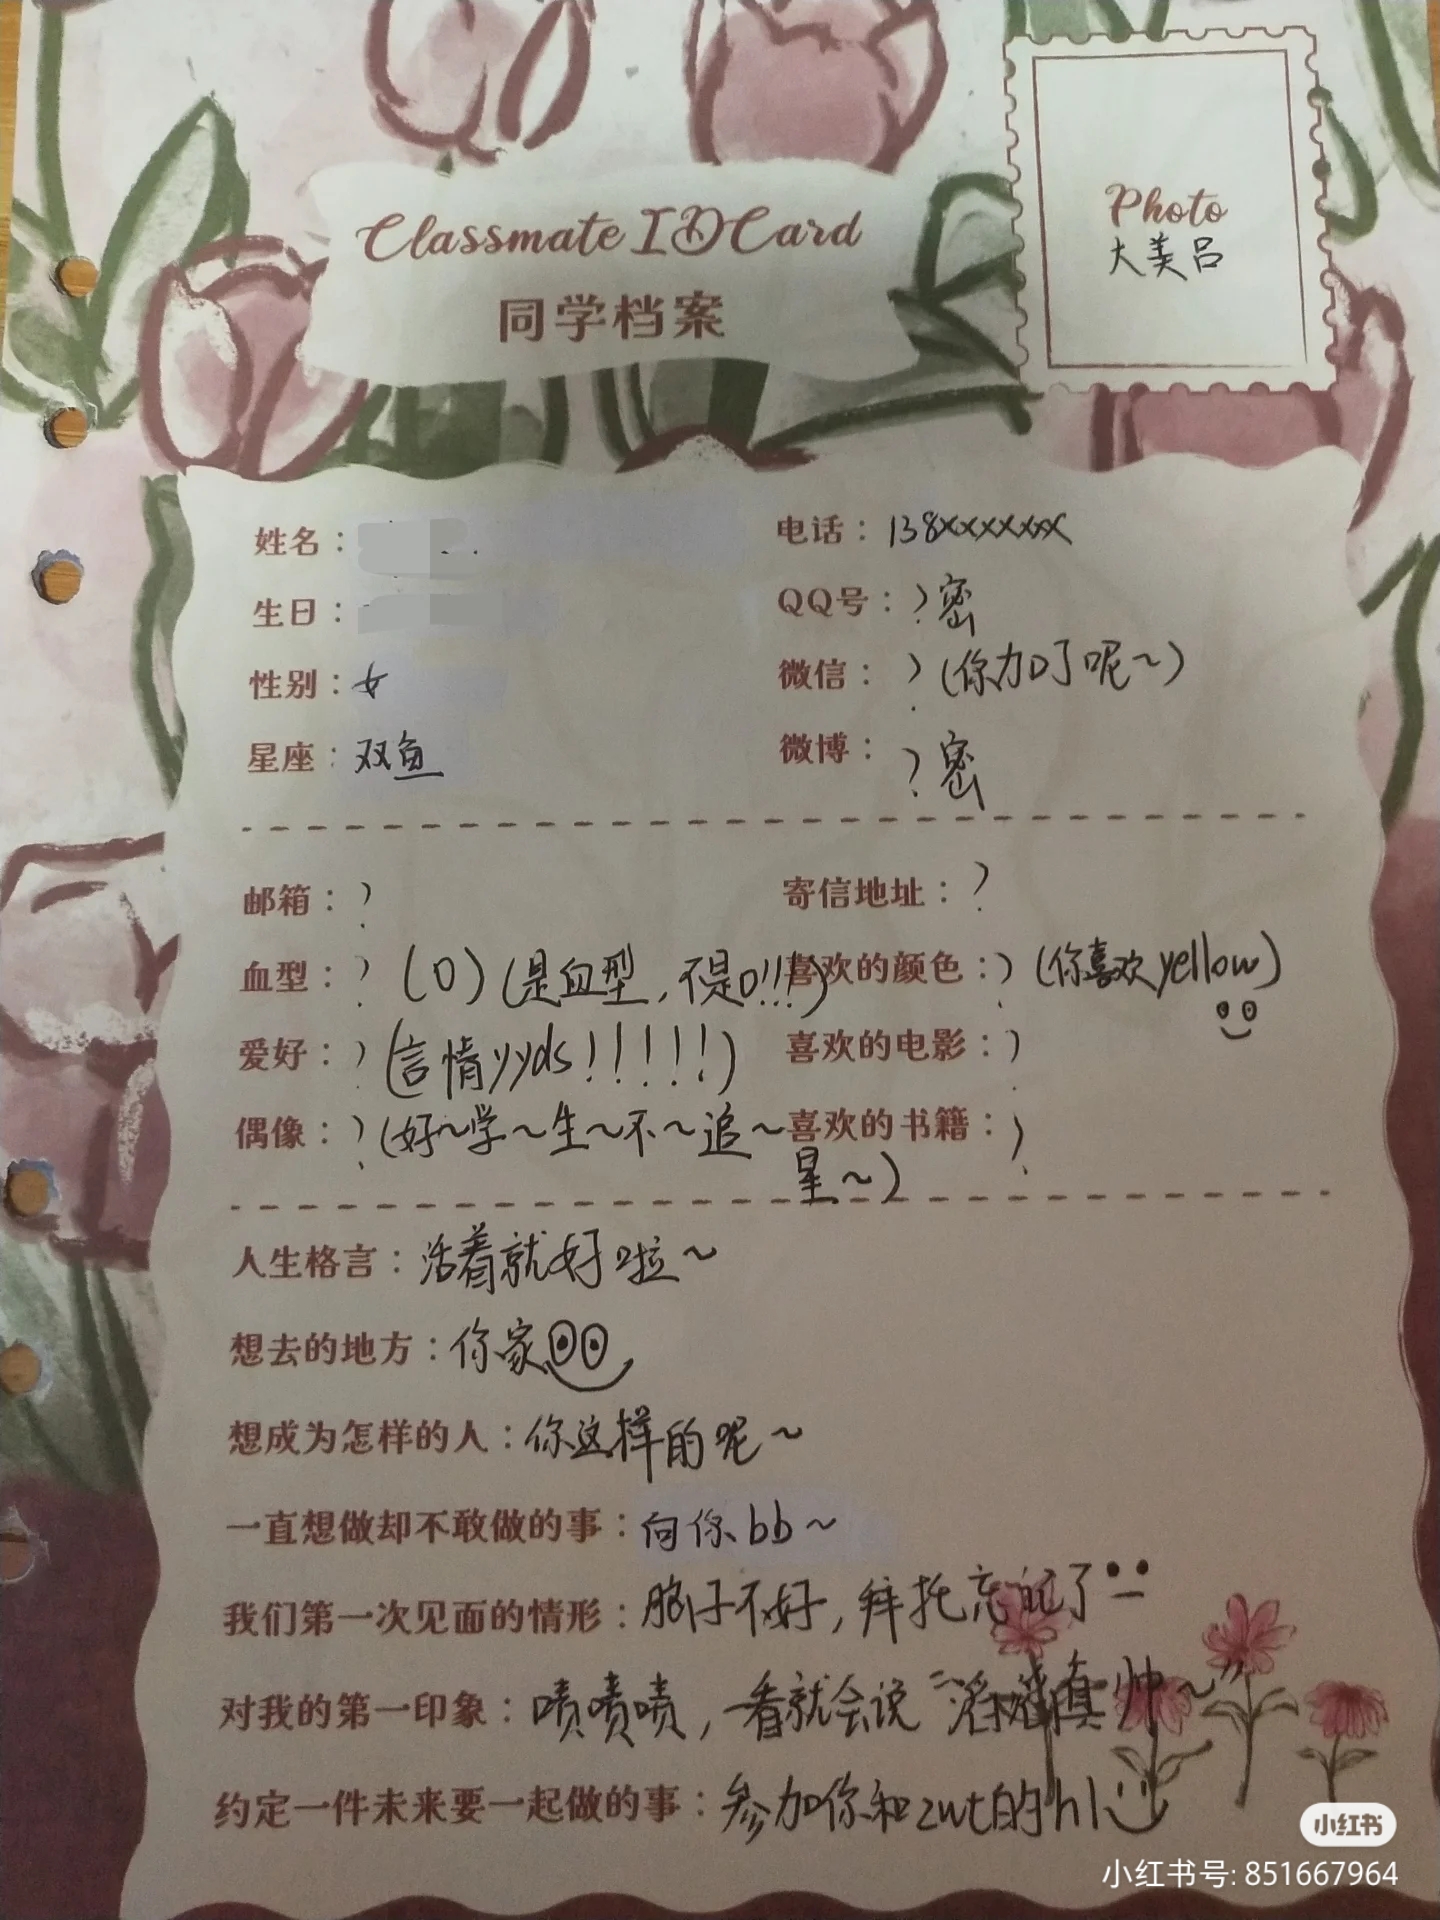 Classmate ID Card
同学档案
Photo
大美吕
姓名：
电话：138xxxxxxxx
生日：
QQ号：？密
性别：女
微信：？(你加了呢～)
星座：双鱼
微博：？密
邮箱：？
寄信地址：？
血型：？(O)(是血型，不是0!!!)
喜欢的颜色：？(你喜欢yellow)
爱好：？(言情yyds！！！！！！)
喜欢的电影：？
偶像：？(好～学～生～不～追～
喜欢的书籍：？
星～)
人生格言：活着就好啦～
想去的地方：你家
想成为怎样的人：你这样的呢～
一直想做却不敢做的事：向你bb～
我们第一次见面的情形：脑子不好，拜托忘记了
对我的第一印象：啧啧啧，一看就会说“真帅～”
约定一件未来要一起做的事：参加你和zwt的hl
小红书
小红书号: 851667964